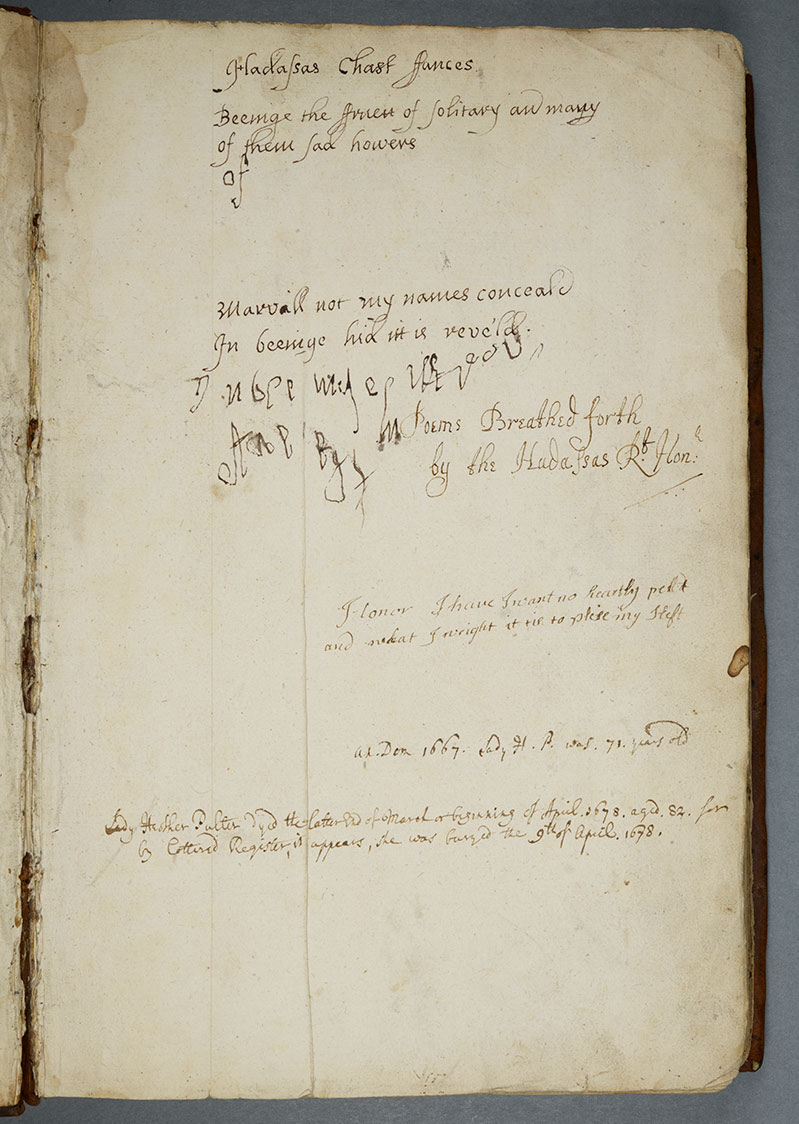 Hadassas Chast fances
Beeinge the fruett of solitary and many
of them sad howers
of
Marvill not my names conceald
In beeinge hid itt is reveld.
Poems Breathed forth
by the Hadassas Rt Hon:e
Honor I have I want no
and what I it tis to plese my selft
An. Dom 1667. Lady H. P. was. 71. years old
Lady Heather Pulter Dyed the latter End of March or beginning of April. 1678. aged. 82. for
by Cottered Register, it appears, she was buryed the 9th of April. 1678.
1